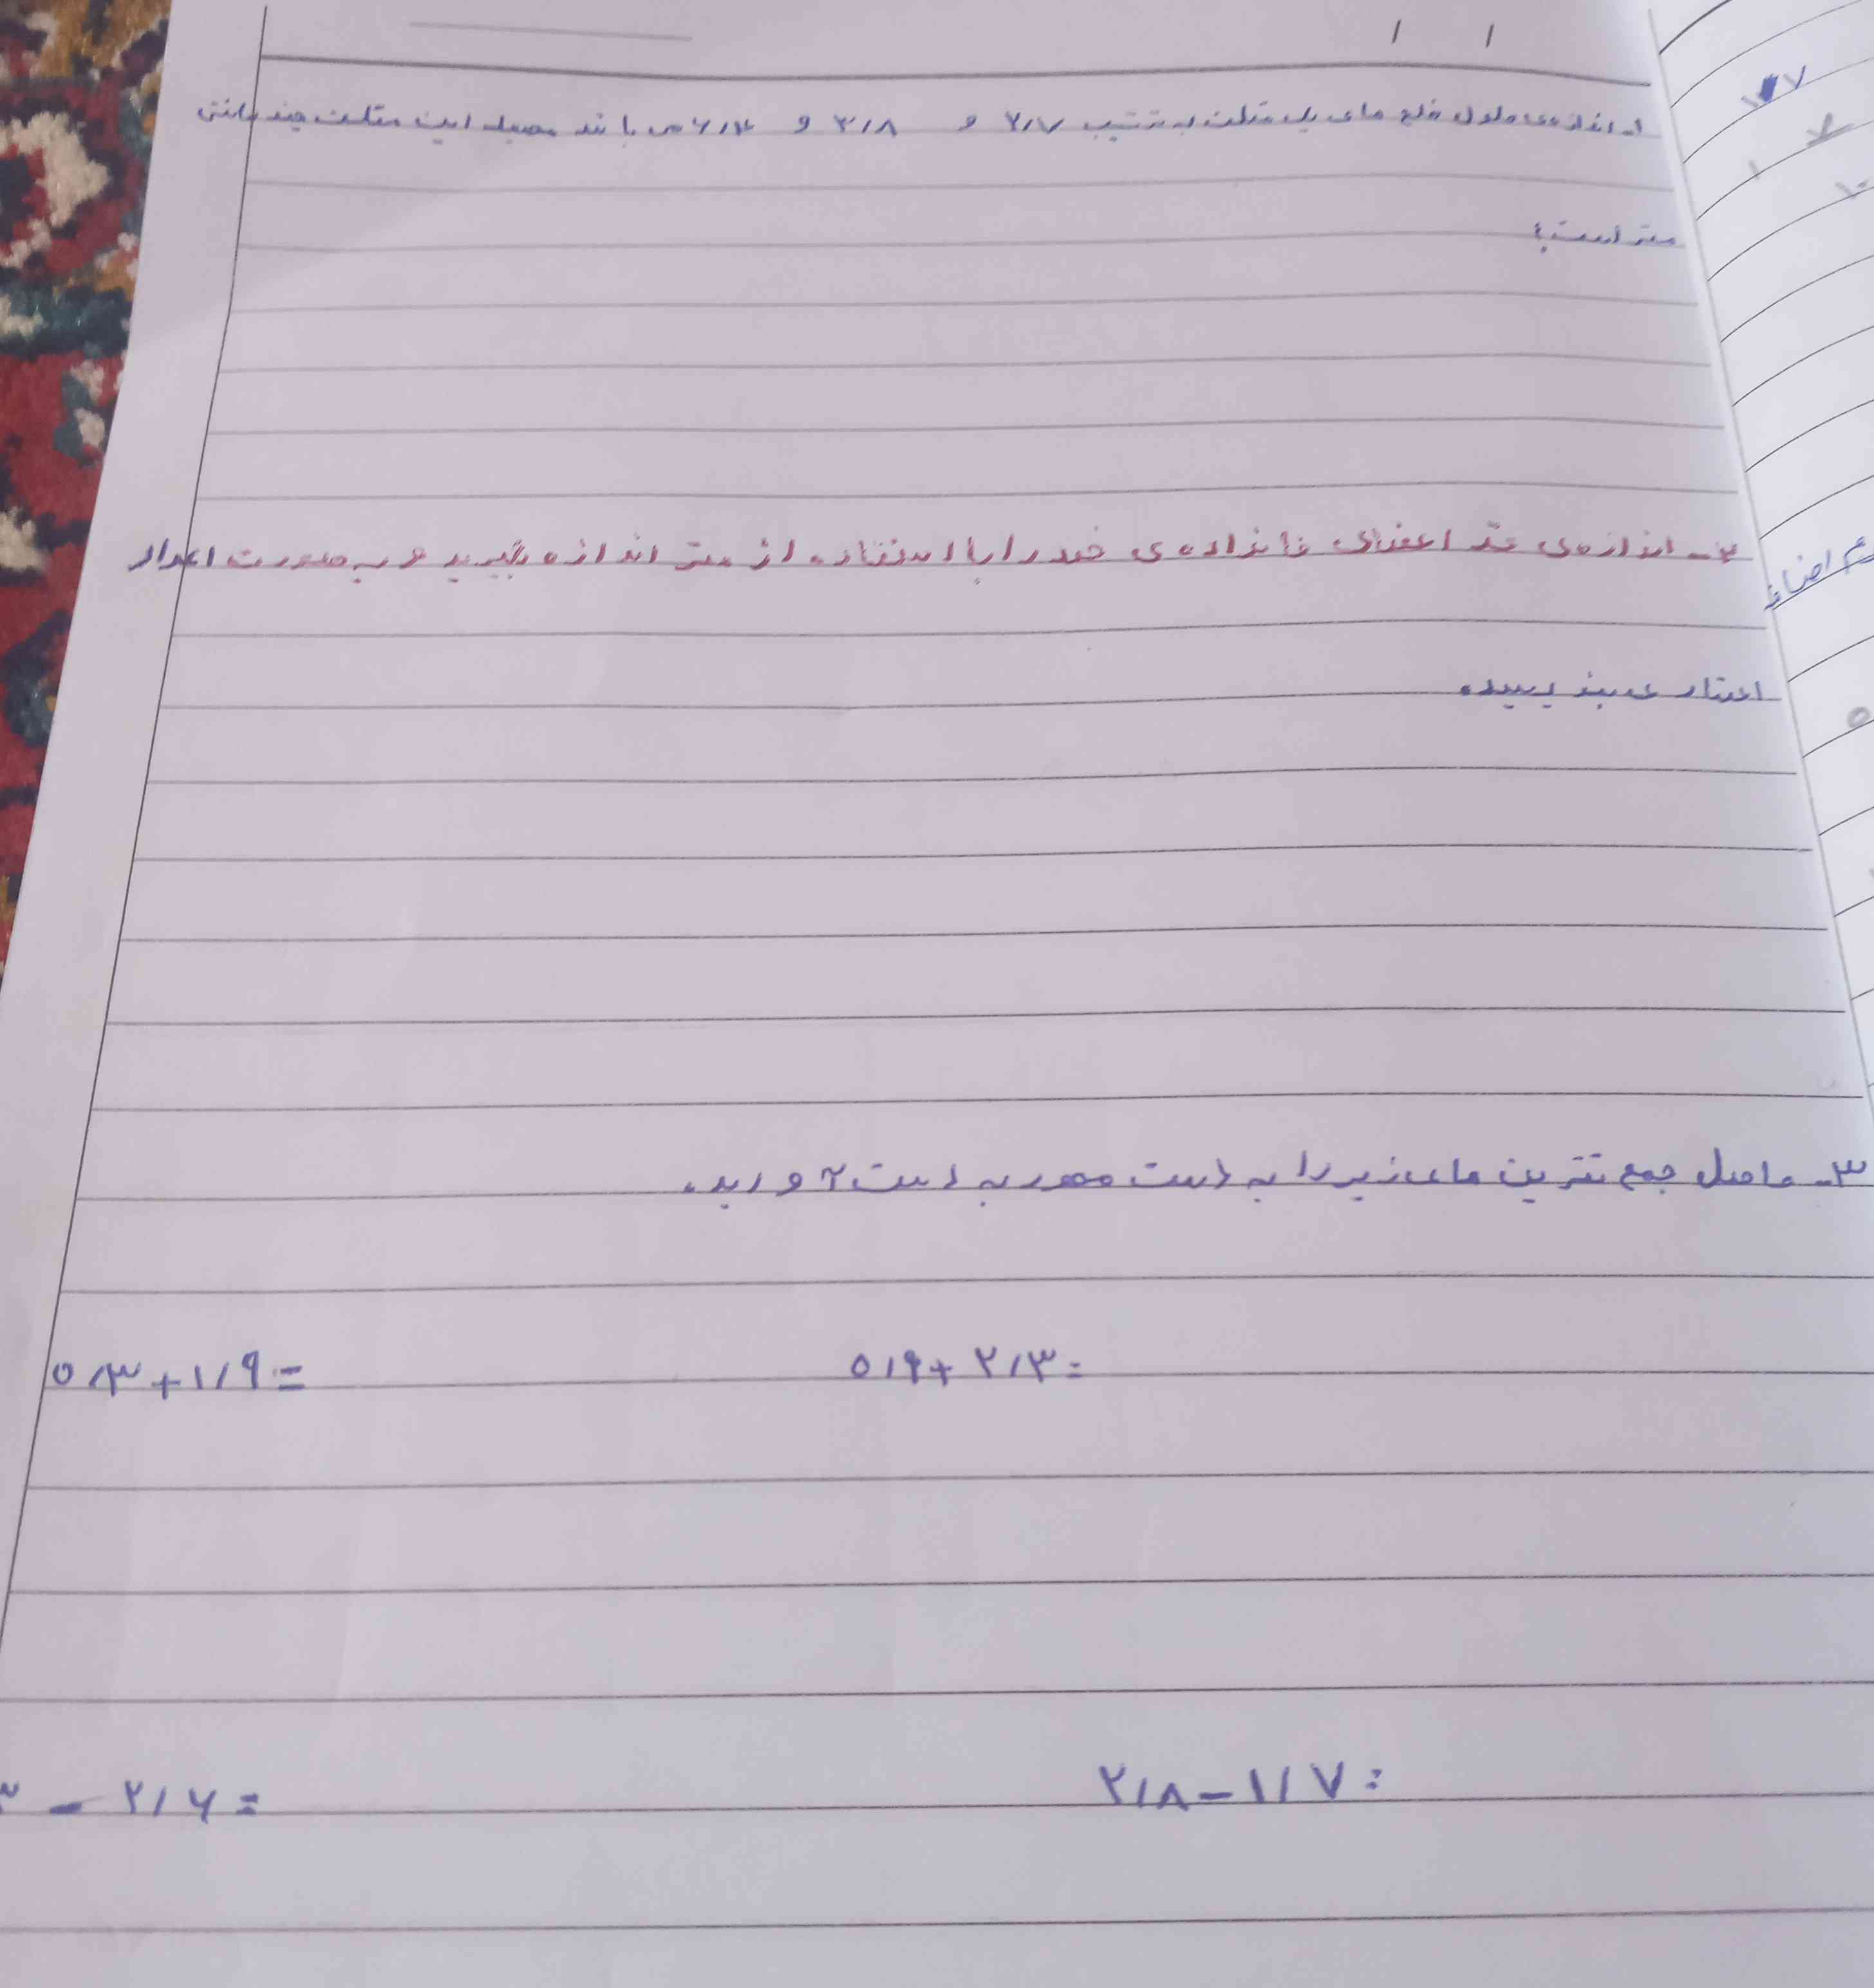 ۱ـ اندازه‌ی طول ضلع های یک مثلث به ترتیب ۲/۷ و ۳/۸ و ۶/۴ می باشد محیط این مثلث چند سانتی
متر است؟
۲ـ اندازه‌ی قدّ اعضای خانواده ی خود را با استفاده از متر اندازه بگیرید و به صورت اعداد
اعشاری بنویسید.
۳ـ حاصل جمع تفریق های زیر را به دست محور به دست آورید.
۰/۳+۱/۹= ۰/۹+۲/۳=
۳ - ۲/۶= ۲/۸-۱/۷=